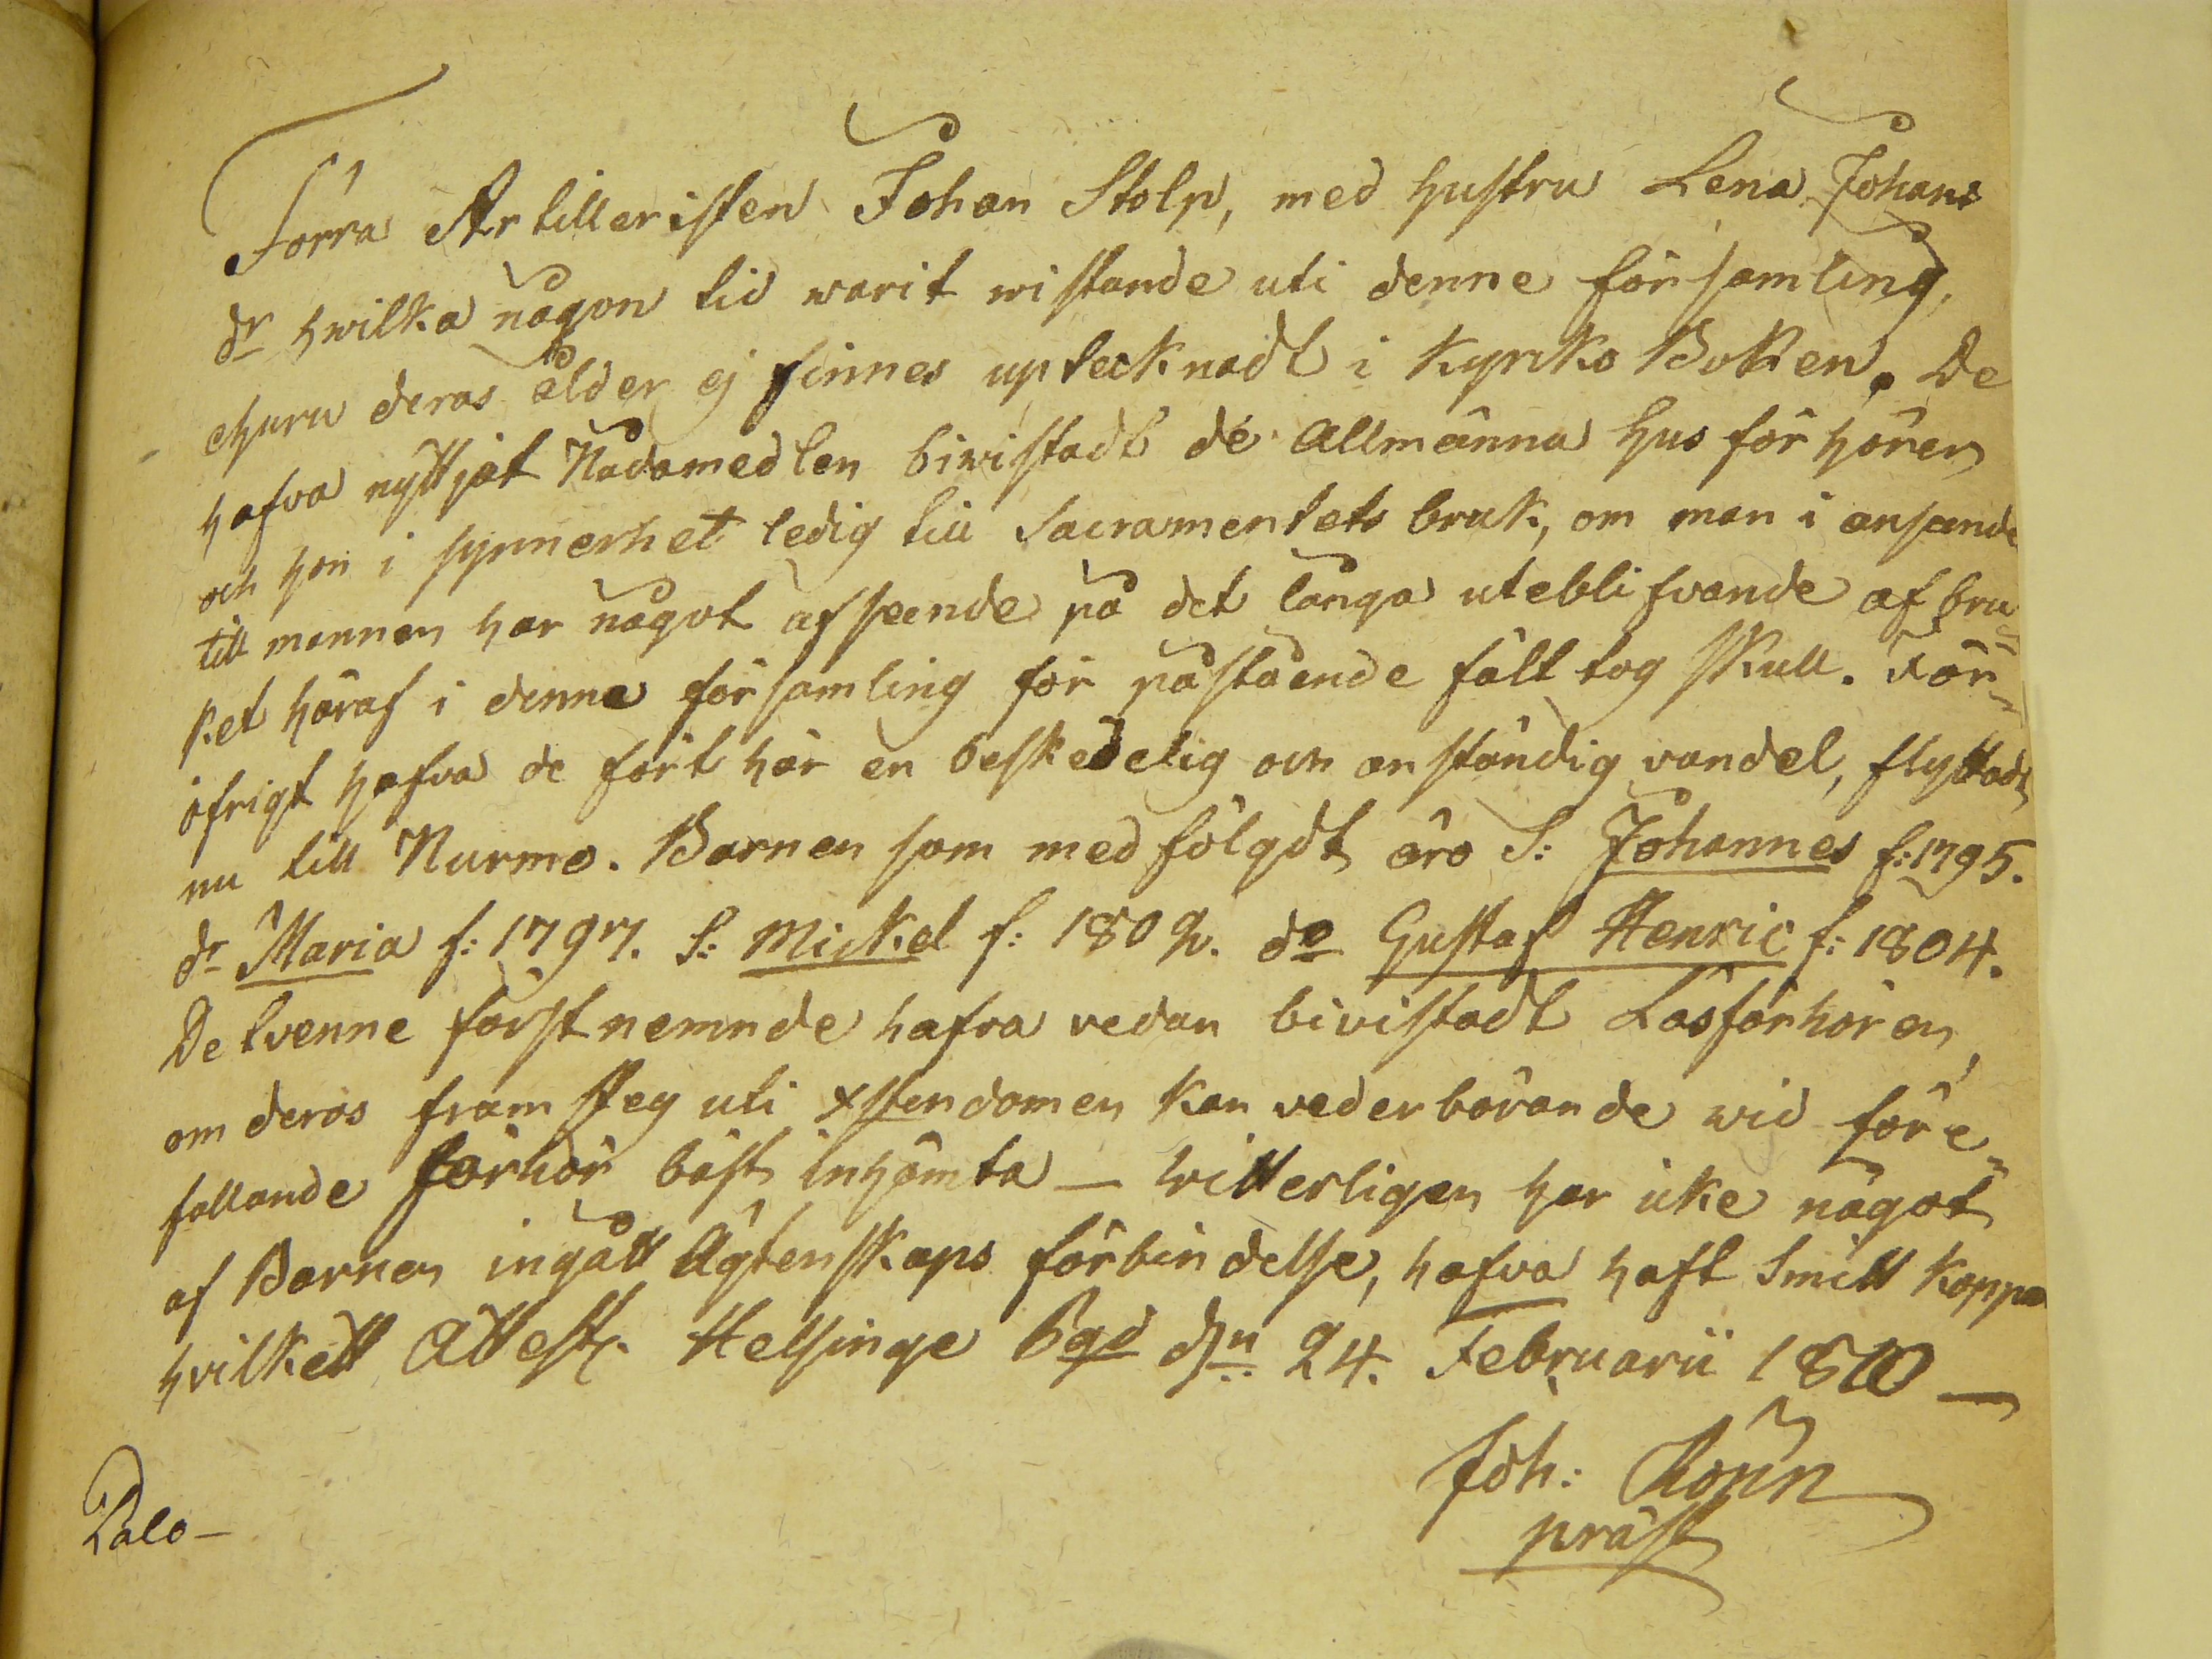 Förra Artilleristen Johan Stolp, med hustru Lena Johans
dr hwilka någon tid warit wistande uti denne församling,
ehuru deras ålder ej finnes uptecknadt i Kyrko Boken. De
hafva nyttjat Nådamedlen biwistadt de Allmänna Hus förhören
och hon i synnerhet ledig till Sacramentets bruk, om man i anseende
till mannen har något afseende på det långa uteblifvande af bru-
ket häraf i denna församling för påstående fält tog skull. För-
öfrigt hafva de fört här en beskedelig och anständig vandel, flyttadt
nu till Nurmo. Barnen som medfölgdt äro S: Johannes f: 1795.
dr Maria f: 1797. S: Mickel f: 1802. do Gustaf Henric f: 1804.
De tvenne förstnemnde hafva redan bivistadt Läsförhören,
om deras framsteg uti xstendomen kan vederbörande wid före-
fallande förhör bäst inhämta — Witterligen har icke något
af Barnen ingått Ägtenskaps förbindelse, hafva haft Smitt koppor
hvilkett Attest. Helsinge Bgd dn 24. Februarii 1810 —
Joh: Rönn
präst
Palo-